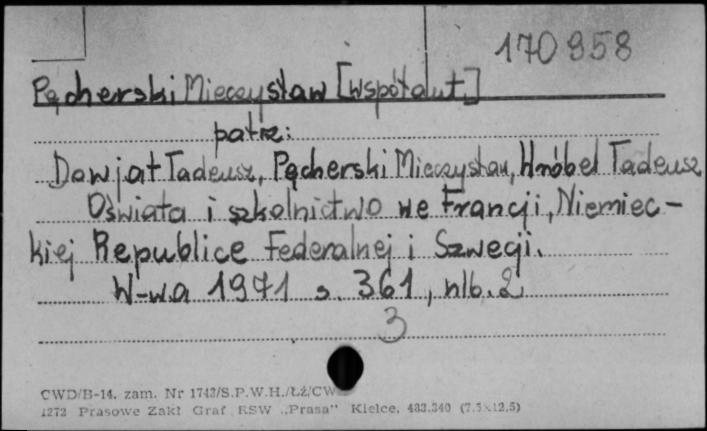 170958
Pęcherski Mieczysław [współaut.]
patrz:
Dawjat Tadeusz, Pęcherski Mieczysław, Wróbel Tadeusz
Oświata i szkolnictwo we Francji, Niemiec-
kiej Republice Federalnej i Szwecji.
W-wa 1971 s. 361, nlb. 2
3
CWD/B-14. zam. Nr 1743/S.P.W.H./Łż/CW
1272 Prasowe Zakł Graf RSW „Prasa” Kielce, 433.340 (7.5×12.5)